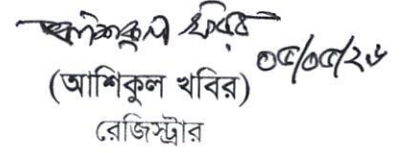 আশিকুল খবির
০৫/০৫/২৬
(আশিকুল খবির)
রেজিস্ট্রার